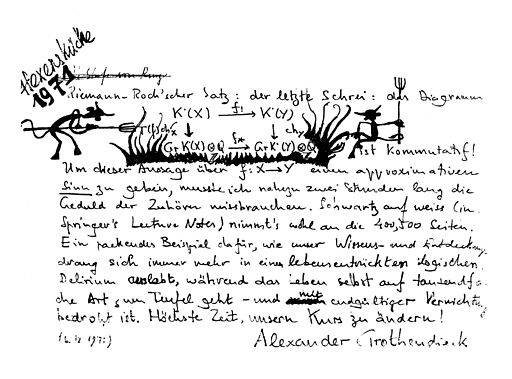 Hexenküche
1971
Riemann-Roch'scher Satz: der letzte Schrei: das Diagramm
K˙(X) f! K˙(Y)
ch
Gr K˙(X)⊗Q f* Gr K˙(Y)⊗Q
ist kommutatif!
Um dieser Aussage über f: X → Y einen approximativen
Sinn zu geben, musste ich nahezu zwei Stunden lang die
Geduld der Zuhörer missbrauchen. Schwartz auf weiss (in
Springer's Lecture Notes) nimmt's wohl an die 400, 500 Seiten.
Ein packendes Beispiel dafür, wie unser Wissens- und Entdeckungs-
drang sich immer mehr in einem lebensentrückten logischen
Delirium auslebt, während das Leben selbst auf tausendfa-
che Art zum Teufel geht - und mit endgültiger Vernichtung
bedroht ist. Höchste Zeit, unsern Kurs zu ändern!
Alexander Grothendieck